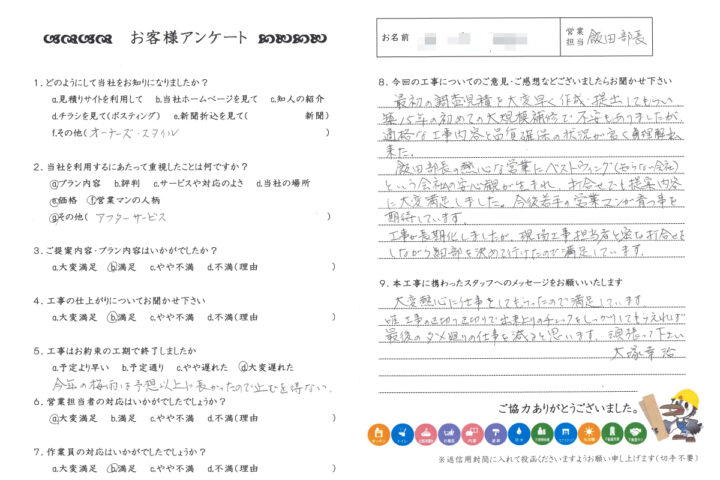 お客様アンケート
1．どのようにして当社をお知りになりましたか？
a.見積りサイトを利用して b.当社ホームページを見て c.知人の紹介
d.チラシを見て(ポスティング) e.新聞折込を見て( 新聞)
f.その他( オーナーズ・スタイル )
2．当社を利用するにあたって重視したことは何ですか？
ⓐプラン内容 b.評判 c.サービスや対応のよさ d.当社の場所
ⓔ価格 ⓕ営業マンの人柄
ⓖその他( アフターサービス )
3．ご提案内容・プラン内容はいかがでしたか？
a.大変満足 ⓑ満足 c.やや不満 d.不満(理由 )
4．工事の仕上がりについてお聞かせ下さい
a.大変満足 ⓑ満足 c.やや不満 d.不満(理由 )
5．工事はお約束の工期で終了しましたか
a.予定より早い b.予定通り c.やや遅れた ⓓ大変遅れた
今年の梅雨は予想以上に長かったので止むを得ない.
6．営業担当者の対応はいかがでしたでしょうか？
ⓐ大変満足 b.満足 c.やや不満 d.不満(理由 )
7．作業員の対応はいかがでしたでしょうか？
a.大変満足 ⓑ満足 c.やや不満 d.不満(理由 )
お名前
営業担当 飯田部長
8．今回の工事についてのご意見・ご感想などございましたらお聞かせ下さい
最初の調査見積を大変早く作成・提出してもらい
築15年の初めての大規模補修で不安もありましたが、
適格な工事内容と品質確保の状況が良く理解出
来た。
飯田部長の熱心な営業にベストウィング
という会社の安心観が生まれ、お打合せでも提案内容
に大変満足しました。今後若手の営業マンが育つ事を
期待しています。
工事が長期化しましたが、現場工事担当者と密な打合せを
しながら細部を決めて行けたので満足しています。
9．本工事に携わったスタッフへのメッセージをお願いいたします
大変熱心に仕事をしてもらったので満足しています。
唯、工事の区切り区切りで出来上りのチェックをしっかりしてもらえれば
最後のダメ廻りの仕事も減ると思います。頑張って下さい
大塚幸治
ご協力ありがとうございました。
※返信用封筒に入れて投函くださいますようお願い申し上げます(切手不要)